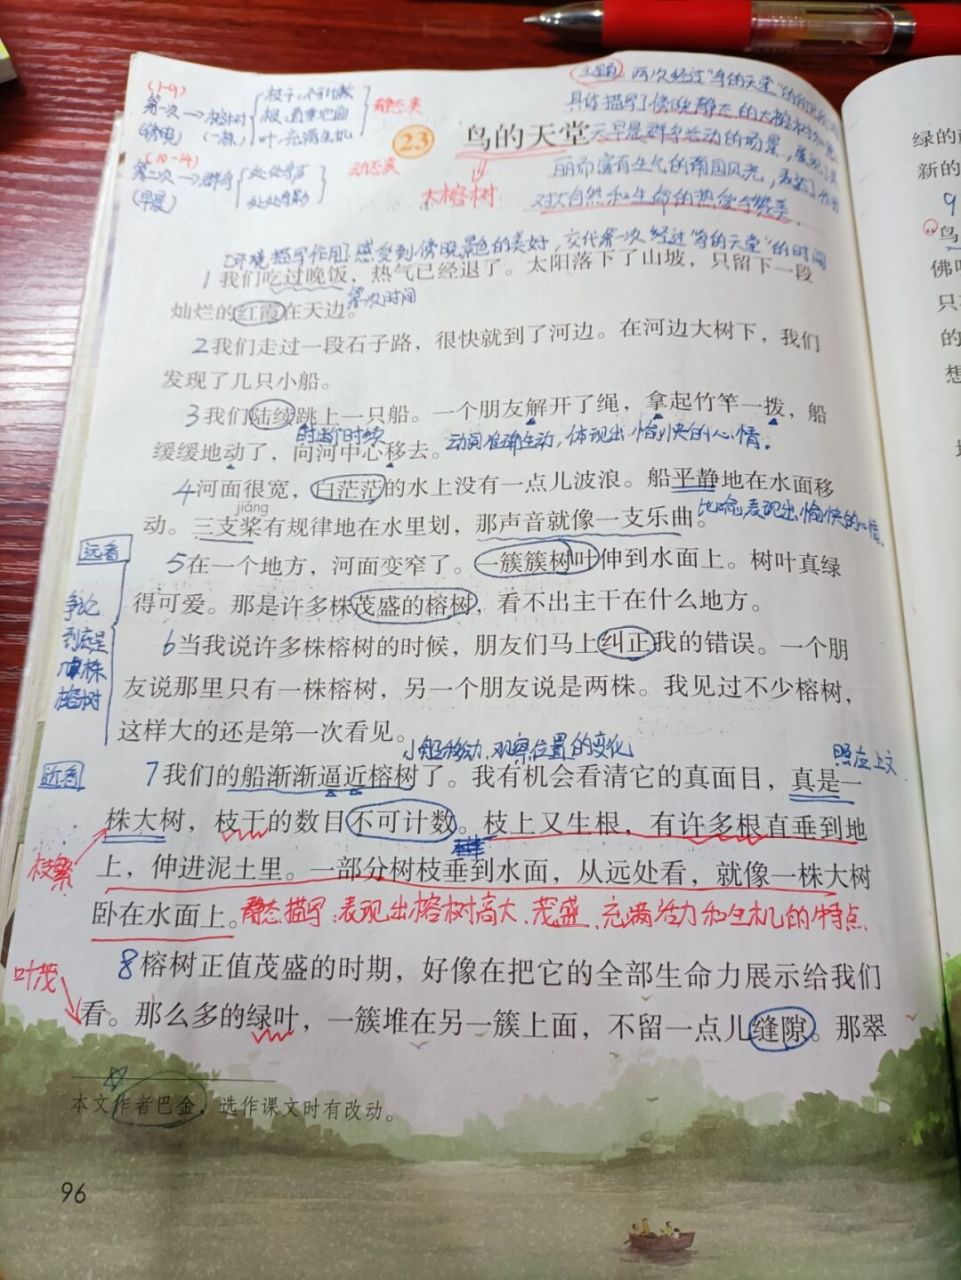 (1-9)
第一次→榕树
(傍晚) (一株)
枝干,不可计数
根,直垂地面
叶,充满生机
静态美
(10-14)
第二次→群鸟
(早晨)
处处鸟声
处处鸟影
动态美
主题 两次经过"鸟的天堂"的
具体描写了傍晚静态的大榕树和第二
天早晨群鸟活动的场景,展现了美
丽而富有生气的南国风光,表达了作者
对大自然和生命的热爱与赞美.
23 鸟的天堂
大榕树
[环境描写作用]感受到傍晚景色的美好,交代第一次经过"鸟的天堂"的时间
1我们吃过晚饭,热气已经退了。太阳落下了山坡,只留下一段
灿烂的红霞在天边。
第一次时间
2我们走过一段石子路,很快就到了河边。在河边大树下,我们
发现了几只小船。
3我们陆续跳上一只船。一个朋友解开了绳,拿起竹竿一拨,船
时断时续
缓缓地动了,向河中心移去。
动词准确生动,体现出愉快的心情.
4河面很宽,白茫茫的水上没有一点儿波浪。船平静地在水面移
jiǎng
动。三支桨有规律地在水里划,那声音就像一支乐曲。
比喻,表现出愉快的心情.
远看
5在一个地方,河面变窄了。一簇簇树叶伸到水面上。树叶真绿
得可爱。那是许多株茂盛的榕树,看不出主干在什么地方。
争论
到底是
几株
榕树
6当我说许多株榕树的时候,朋友们马上纠正我的错误。一个朋
友说那里只有一株榕树,另一个朋友说是两株。我见过不少榕树,
这样大的还是第一次看见。
小船移动,观察位置的变化
照应上文
近看
7我们的船渐渐逼近榕树了。我有机会看清它的真面目,真是一
株大树,枝干的数目不可计数。枝上又生根,有许多根直垂到地
枝繁
上,伸进泥土里。一部分树枝垂到水面,从远处看,就像一株大树
卧在水面上。
静态描写:表现出榕树高大、茂盛、充满活力和生机的特点
8榕树正值茂盛的时期,好像在把它的全部生命力展示给我们
叶茂
看。那么多的绿叶,一簇堆在另一簇上面,不留一点儿缝隙。那翠
本文作者巴金,选作课文时有改动。
96
绿的
新的
9
鸟
佛
只
的
想